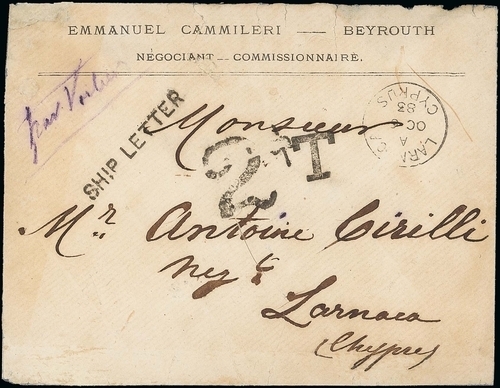 EMMANUEL CAMMILERI — BEYROUTH
NÉGOCIANT — COMMISSIONNAIRE.
SHIP LETTER
LARNACA CYPRUS
A
OC
83
2
T
Monsieur
Mr Antoine Cirilli
Negt
Larnaca
(Chypre)